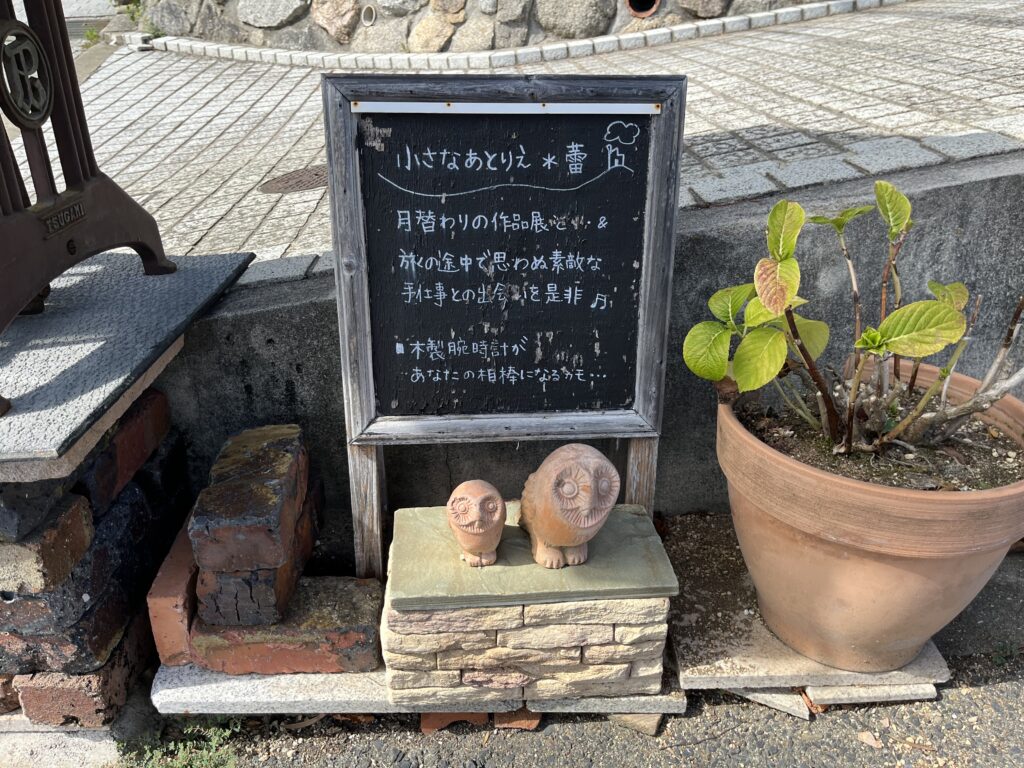 小さなあとりえ＊蕾
月替わりの作品展と・・・&
旅の途中で思わぬ素敵な
手仕事との出会いを是非♪
■木製腕時計が
あなたの相棒になるカモ・・・
TSUGAKI